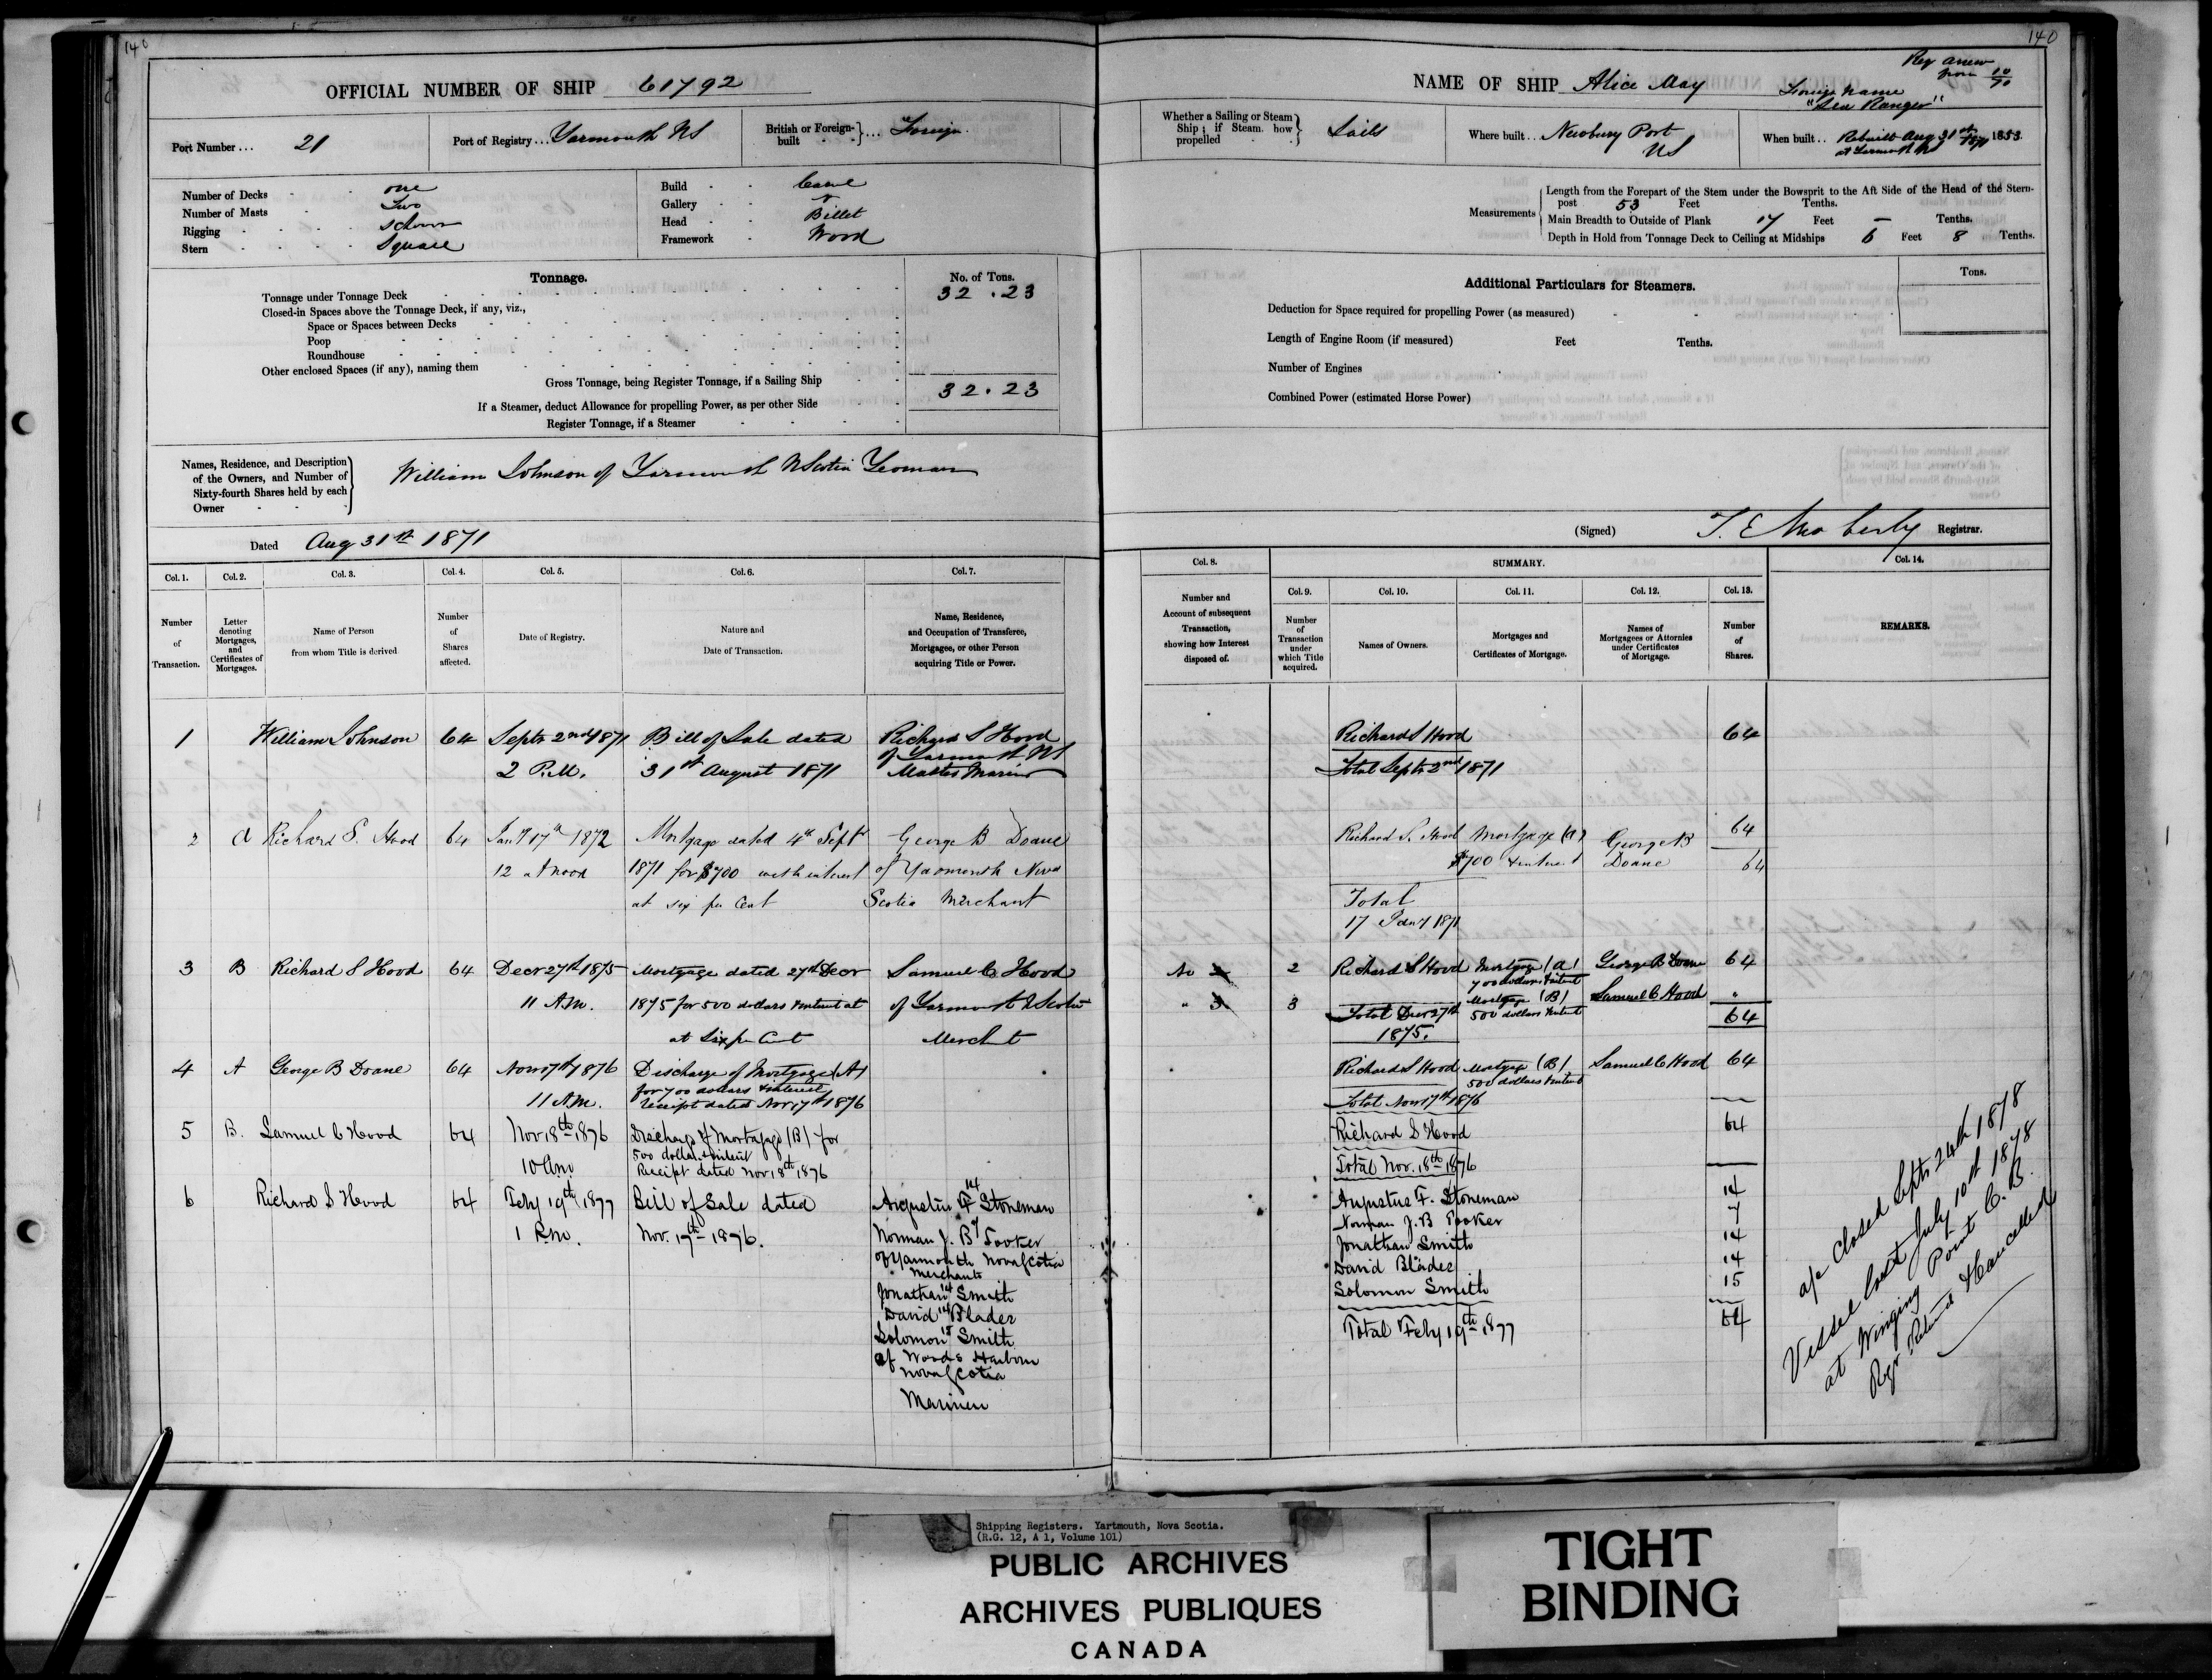 140
OFFICIAL NUMBER OF SHIP 61792
Port Number... 21
Port of Registry... Yarmouth NS
British or Foreign-built } ... Foreign
Number of Decks one
Number of Masts Two
Rigging Schr
Stern Square
Build Carvel
Gallery
Head Billet
Framework Wood
Tonnage.
No. of Tons.
Tonnage under Tonnage Deck 32.23
Closed-in Spaces above the Tonnage Deck, if any, viz.,
Space or Spaces between Decks
Poop
Roundhouse
Other enclosed Spaces (if any), naming them
Gross Tonnage, being Register Tonnage, if a Sailing Ship 32.23
If a Steamer, deduct Allowance for propelling Power, as per other Side
Register Tonnage, if a Steamer
Names, Residence, and Description
of the Owners, and Number of
Sixty-fourth Shares held by each
Owner
William Johnson of Yarmouth N Scotia Yeoman
Dated Aug 31st 1871
Col. 1. Col. 2. Col. 3. Col. 4. Col. 5. Col. 6. Col. 7.
Number of Transaction.
Letter denoting Mortgages, and Certificates of Mortgages.
Name of Person from whom Title is derived
Number of Shares affected.
Date of Registry.
Nature and Date of Transaction.
Name, Residence, and Occupation of Transferee, Mortgagee, or other Person acquiring Title or Power.
1 William Johnson 64 Septr 2nd 1871 Bill of Sale dated Richard S Hood
of Yarmouth NS
2 P.M. 31st August 1871 Master Mariner
2 A Richard S. Hood 64 Jany 17th 1872 Mortgage dated 4th Sept George B Doane
12 at noon 1871 for $700 with interest of Yarmouth Nova
at six per Cent Scotia Merchant
3 B Richard S Hood 64 Decr 27th 1875 Mortgage dated 27th Decr Samuel C Hood
11 A.M. 1875 for 500 dollars & interest at of Yarmouth N Scotia
at Six per Cent Merchant
4 A George B Doane 64 Nov 17th 1876 Discharge of Mortgage (A)
for 700 dollars & interest
11 A.M. receipt dated Nov 17th 1876
5 B. Samuel C Hood 64 Nov 18th 1876 Discharge of Mortgage (B) for
500 dollars & interest
10 am Receipt dated Nov 18th 1876
6 Richard S Hood 64 Feby 19th 1877 Bill of Sale dated Augustus F Stoneman 14
1 P.M. Nov. 17th 1876. Norman J. B Tooker 7
of Yarmouth Nova Scotia
Merchants
Jonathan Smith 14
David Blader 14
Solomon Smith 15
of Woods Harbour
Nova Scotia
Mariners
140
Reg anew
from 10/70
NAME OF SHIP Alice May
Foreign Name
"Sea Ranger"
Whether a Sailing or Steam Ship; if Steam, how propelled } Sails
Where built... Newbury Port
US
When built.. Rebuilt Aug 31st 1871 1853
at Yarmouth NS
Measurements
Length from the Forepart of the Stem under the Bowsprit to the Aft Side of the Head of the Stern-
post 53 Feet Tenths.
Main Breadth to Outside of Plank 17 Feet – Tenths.
Depth in Hold from Tonnage Deck to Ceiling at Midships 6 Feet 8 Tenths.
Additional Particulars for Steamers.
Tons.
Deduction for Space required for propelling Power (as measured)
Length of Engine Room (if measured) Feet Tenths.
Number of Engines
Combined Power (estimated Horse Power)
(Signed) T. E Moberly Registrar.
Col. 8. SUMMARY. Col. 14.
Col. 9. Col. 10. Col. 11. Col. 12. Col. 13.
Number and Account of subsequent Transaction, showing how Interest disposed of.
Number of Transaction under which Title acquired.
Names of Owners.
Mortgages and Certificates of Mortgage.
Names of Mortgagees or Attornies under Certificates of Mortgage.
Number of Shares.
REMARKS.
Richard S Hood 64
Total Septr 2nd 1871
Richard S. Hood Mortgage (A) George B 64
$700 & interest Doane 64
Total
17 Jany 1871
No 2 2 Richard S Hood Mortgage (A) George B Doane 64
700 dollars & interest
" 3 3 Mortgage (B) Samuel C Hood "
Total Decr 27th 500 dollars & interest 64
1875.
Richard S Hood Mortgage (B) Samuel C Hood 64
500 dollars & interest
Total Nov 17th 1876
Richard S Hood 64
Total Nov. 18th 1876
Augustus F. Stoneman 14
Norman J. B Tooker 7
Jonathan Smith 14
David Blader 14
Solomon Smith 15
Total Feby 19th 1877 64
a/c Closed Septr 24th 1878
Vessel lost July 10th 1878
at Winging Point C. B.
Regr Returned & Cancelled
Shipping Registers. Yartmouth, Nova Scotia.
(R.G. 12, A 1, Volume 101)
PUBLIC ARCHIVES
ARCHIVES PUBLIQUES
CANADA
TIGHT
BINDING